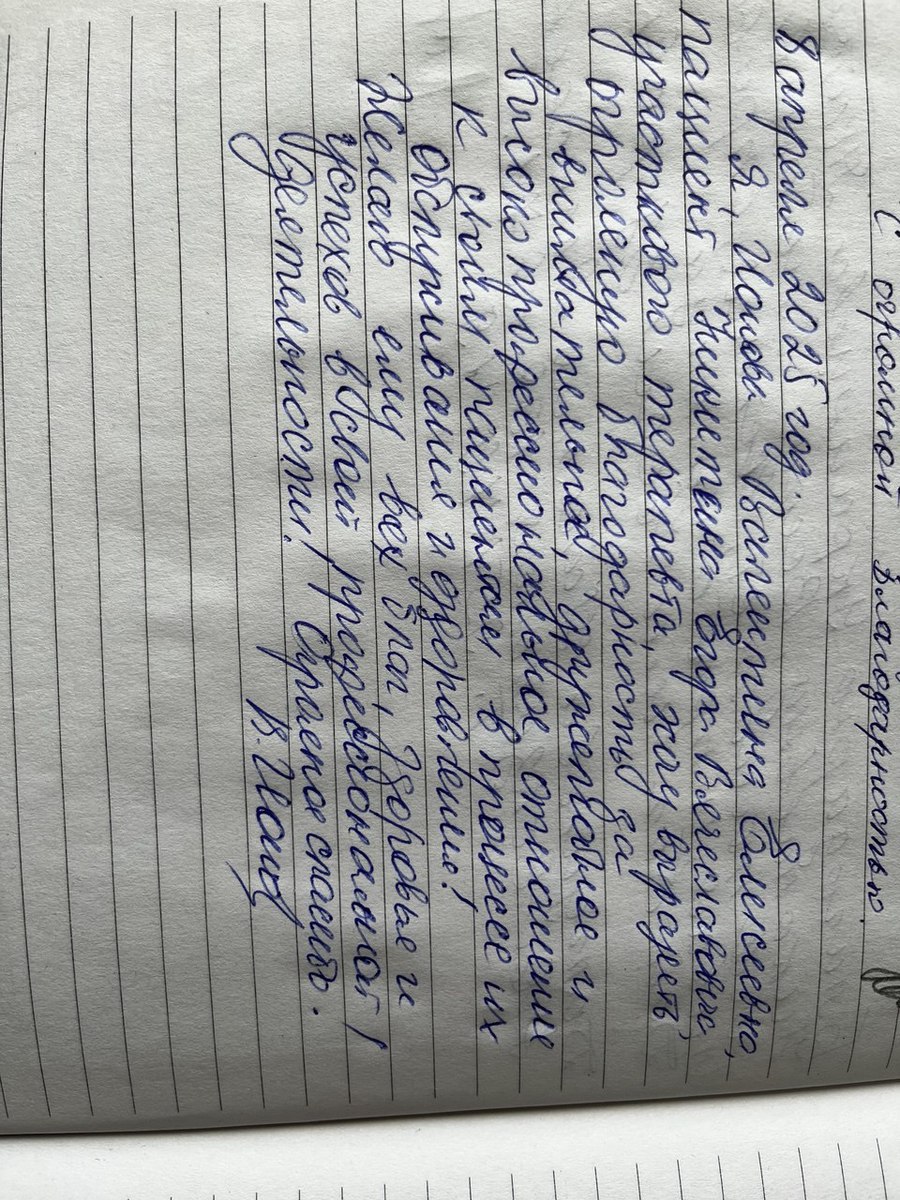 С огромной благодарностью.
8 апреля 2025 год.
Я, Валентина Алексеевна,
пациент Никитина Егора Вячеславовича,
участкового терапевта, хочу выразить
огромную благодарность за
внимательное, дружелюбное и
высоко профессиональное отношение
к своим пациентам в процессе их
обслуживания и оздоровления!
Желаю ему всех благ, здоровья и
успехов в своей профессиональной
деятельности! Огромное спасибо.
В.